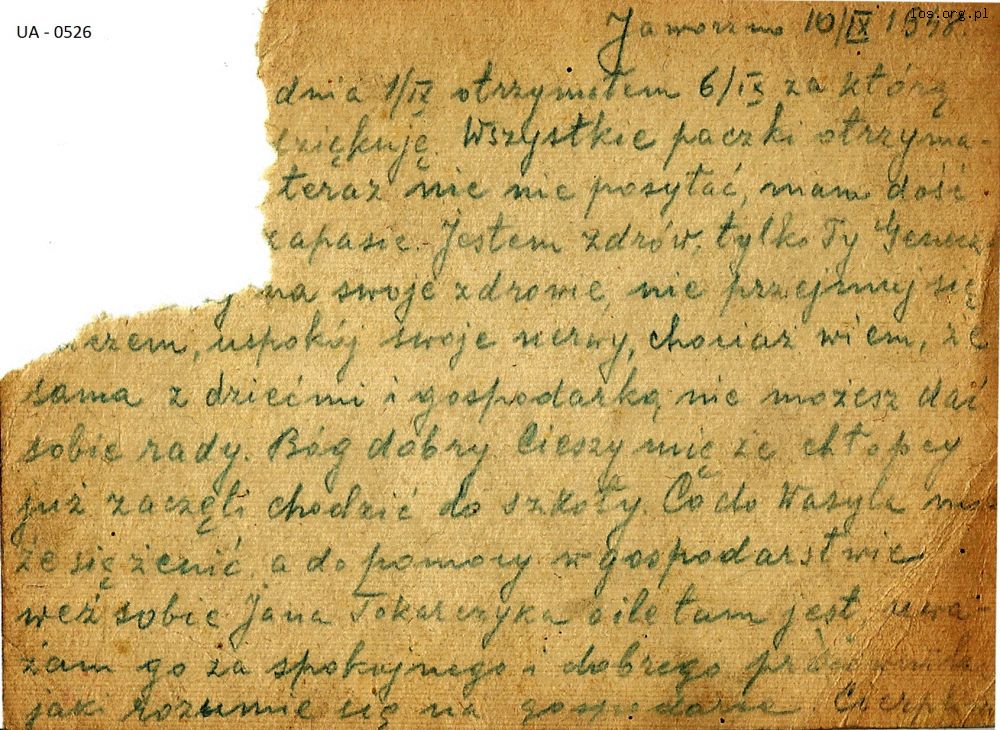 los.org.pl
UA - 0526
Jaworzno 10/IX 1948.
dnia 1/IX otrzymałem 6/IX za którą
dziękuję. Wszystkie paczki otrzyma-
teraz nic nie posyłać, mam dość
zapasie. Jestem zdrów, tylko Ty
na swoje zdrowie, nie przejmuj się
uspokój swoje nerwy, chociaż wiem, że
sama z dziećmi i gospodarką nie możesz dać
sobie rady. Bóg dobry Cieszy mię że chłopcy
już zaczęli chodzić do szkoły. Co do Wasyla mo-
że się żenić, a do pomocy w gospodarstwie
weź sobie Jana Tokarczyka o ile tam jest, uwa-
żam go za spokojnego i dobrego
jaki rozumie się na gospodarce.